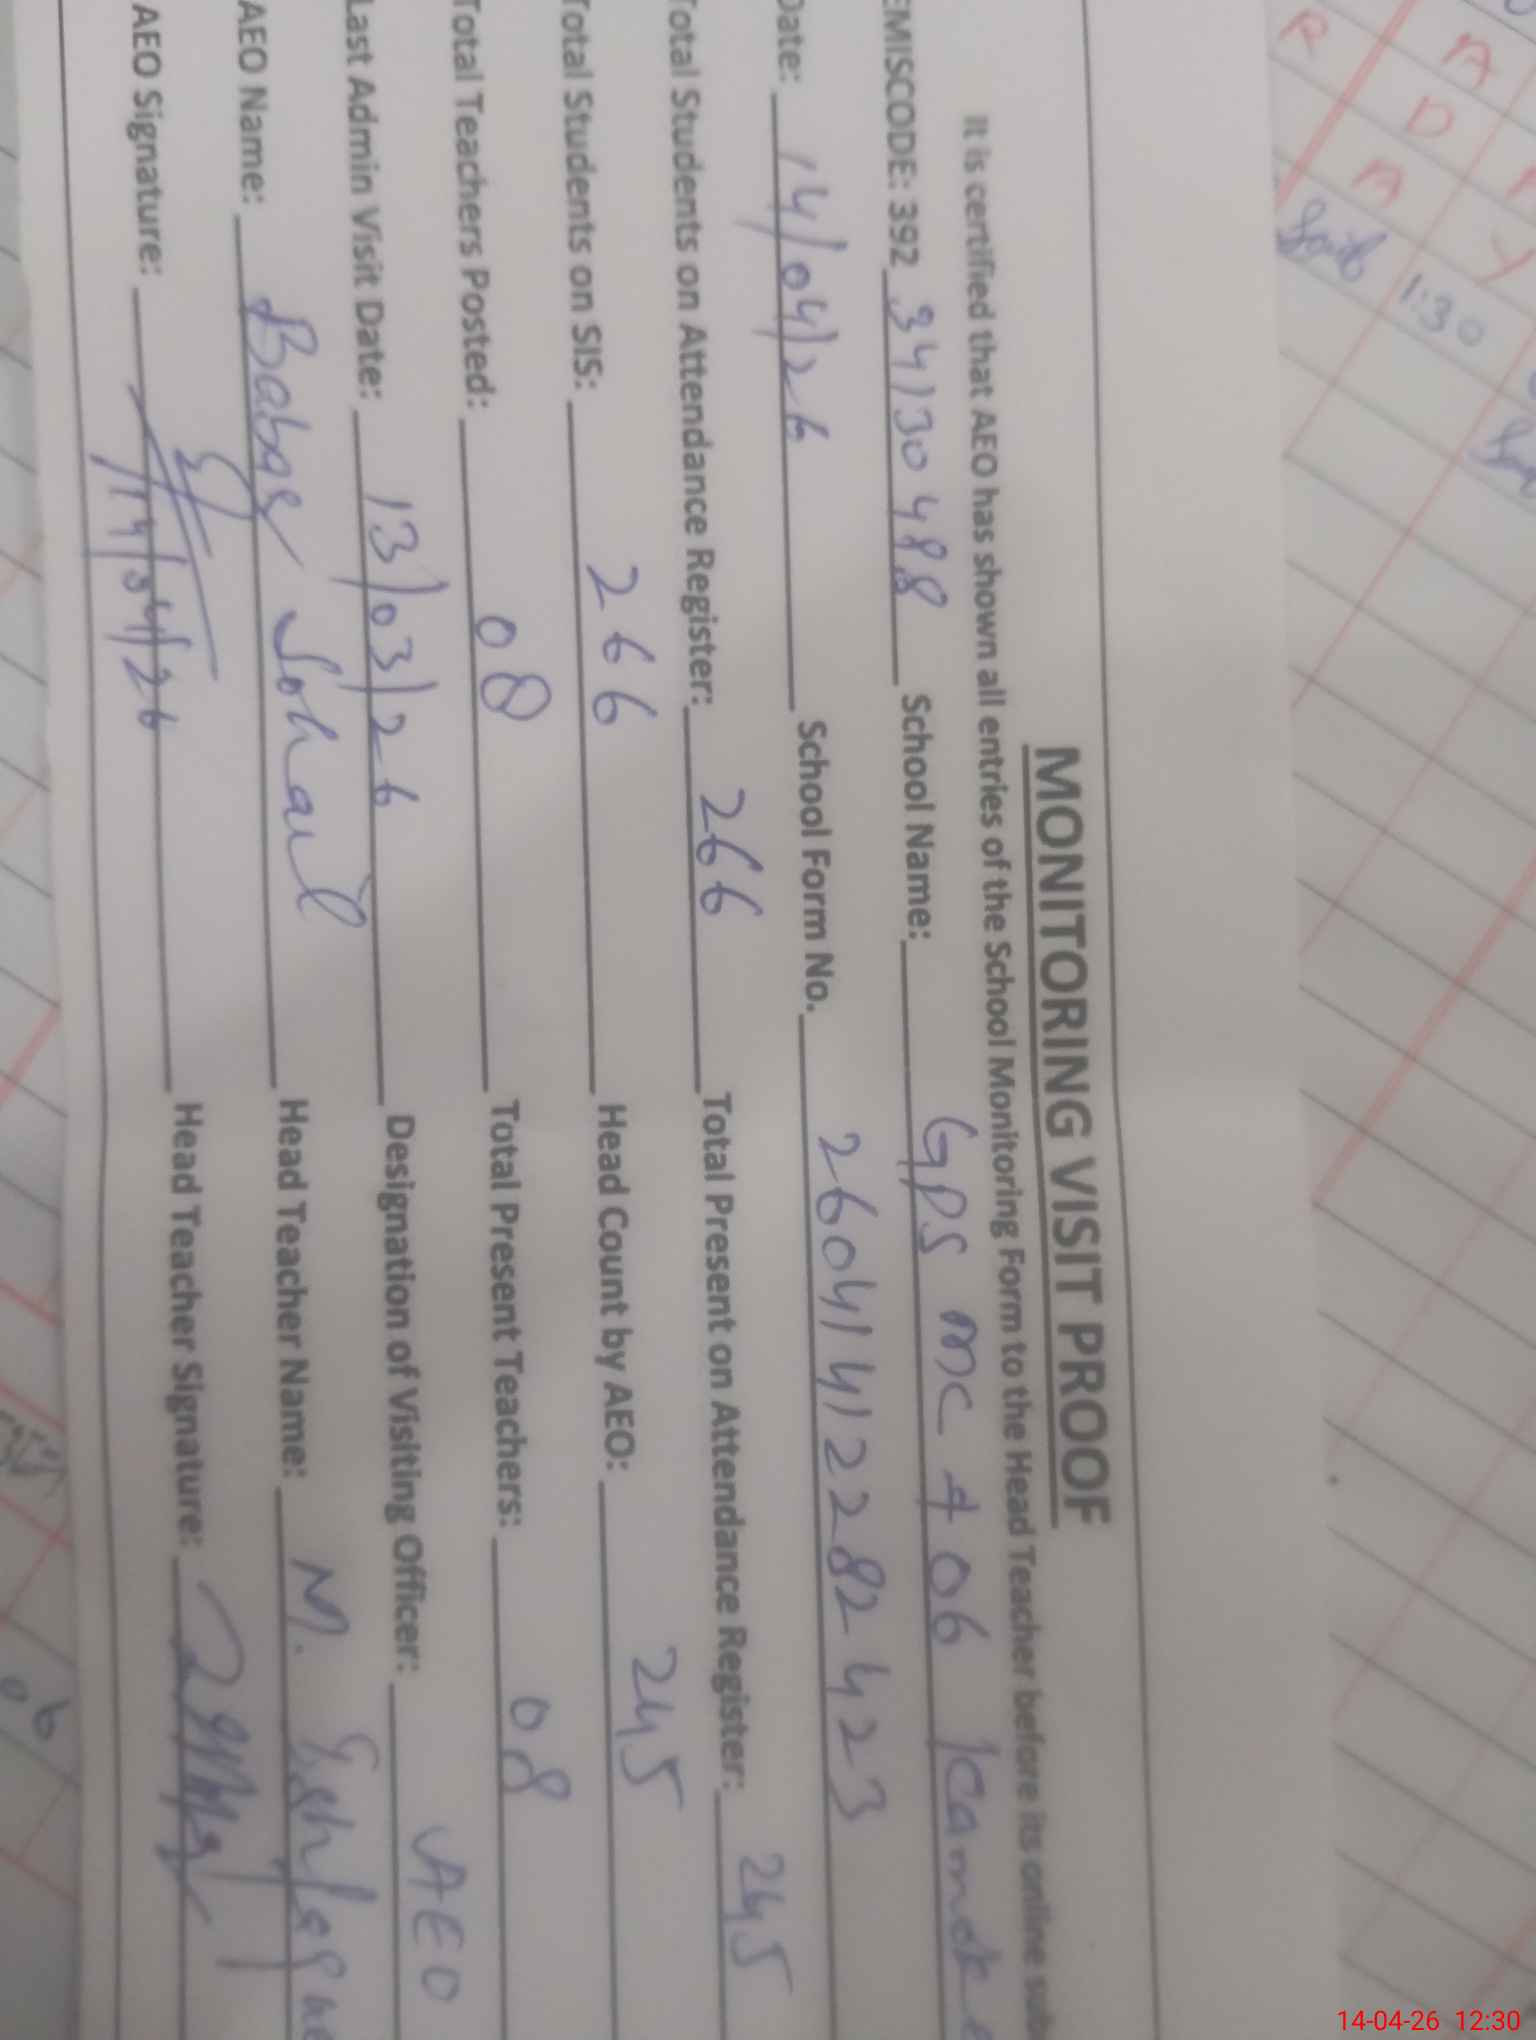 MONITORING VISIT PROOF
It is certified that AEO has shown all entries of the School Monitoring Form to the Head Teacher before its online
EMISCODE: 392 34130488 School Name: GPS MC 406
Date: 14/04/26 School Form No. 26041412282423
Total Students on Attendance Register: 266 Total Present on Attendance Register: 245
Total Students on SIS: 266 Head Count by AEO: 245
Total Teachers Posted: 08 Total Present Teachers: 08
Last Admin Visit Date: 13/03/26 Designation of Visiting Officer: AEO
AEO Name: Babar Sohail Head Teacher Name: M.
AEO Signature: 14/04/26 Head Teacher Signature:
R A
D
A Y
1:30
06
14-04-26 12:30